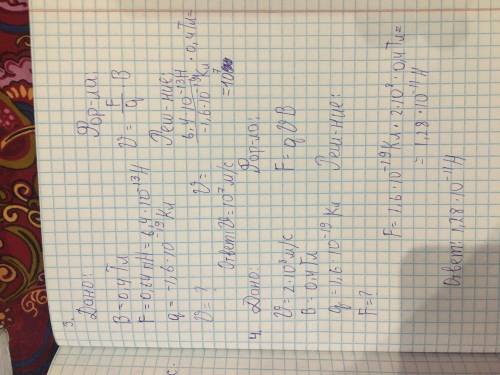 3.
Дано:
B = 0,4 Тл
F = 0,64 пН = 6,4·10⁻¹³ Н
q = -1,6·10⁻¹⁹ Кл
υ = ?
Фор-ла:
υ = F/q · B
Реш-ние:
υ = 6,4·10⁻¹³Н / -1,6·10⁻¹⁹Кл · 0,4 Тл =
= 10⁷
Ответ: υ = 10⁷ м/с
4. Дано:
υ = 2·10⁸ м/с
B = 0,4 Тл
q = -1,6·10⁻¹⁹ Кл
F = ?
Фор-ла:
F = q υ B
Реш-ние:
F = 1,6·10⁻¹⁹ Кл · 2·10⁸ · 0,4 Тл =
= 1,28·10⁻¹¹ Н
Ответ: 1,28·10⁻¹¹ Н